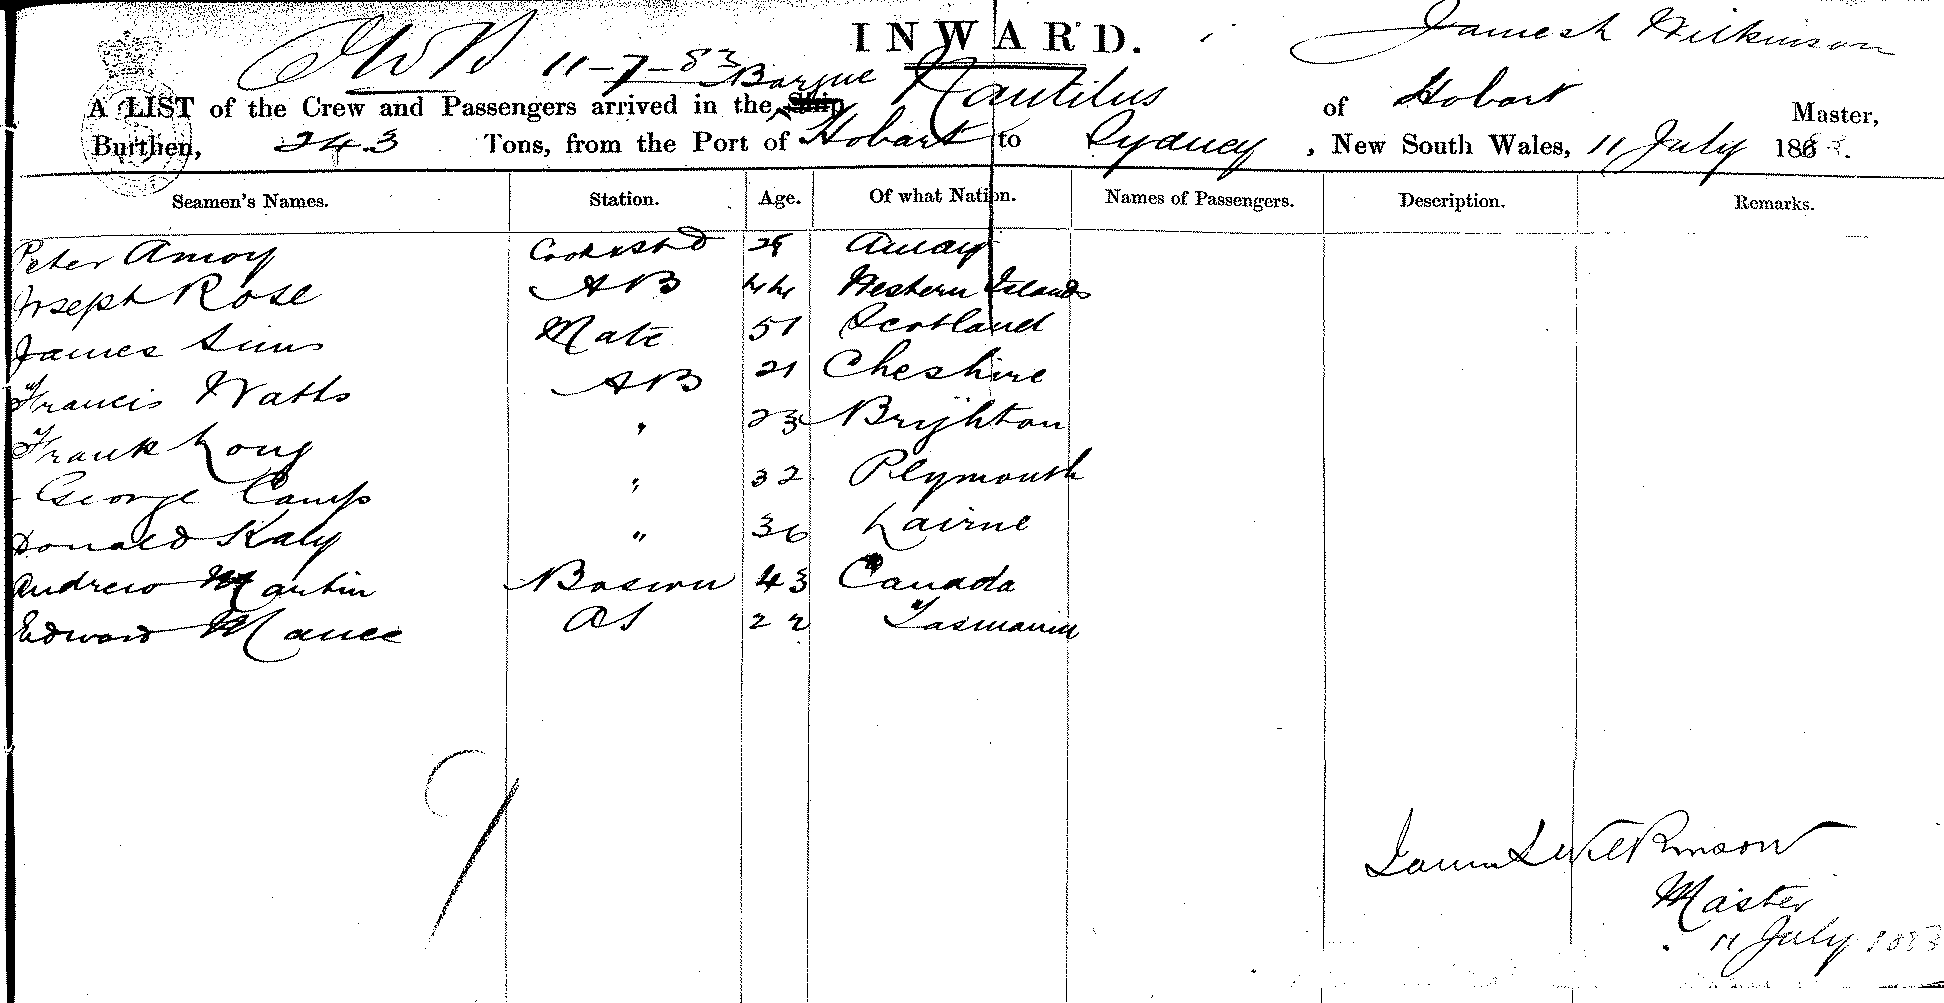 INWARD.
JWB 11-7-83 Barque Nautilus of Hobart James H Wilkinson Master,
A LIST of the Crew and Passengers arrived in the Ship
Burthen, 243 Tons, from the Port of Hobart to Sydney, New South Wales, 11 July 1883.
Seamen's Names. Station. Age. Of what Nation. Names of Passengers. Description. Remarks.
Peter Amoy Cook & Std Amoy
Joseph Rose AB 44 Western Islands
James Sims Mate 51 Scotland
Francis Watts AB 21 Cheshire
Frank Long " 23 Brighton
George Camp " 32 Plymouth
Donald Kaly " 36 Lairne
Andrew Martin Boswn 43 Canada
Edward Mance OS 22 Tasmania
9
James H Wilkinson
Master
11 July 1883